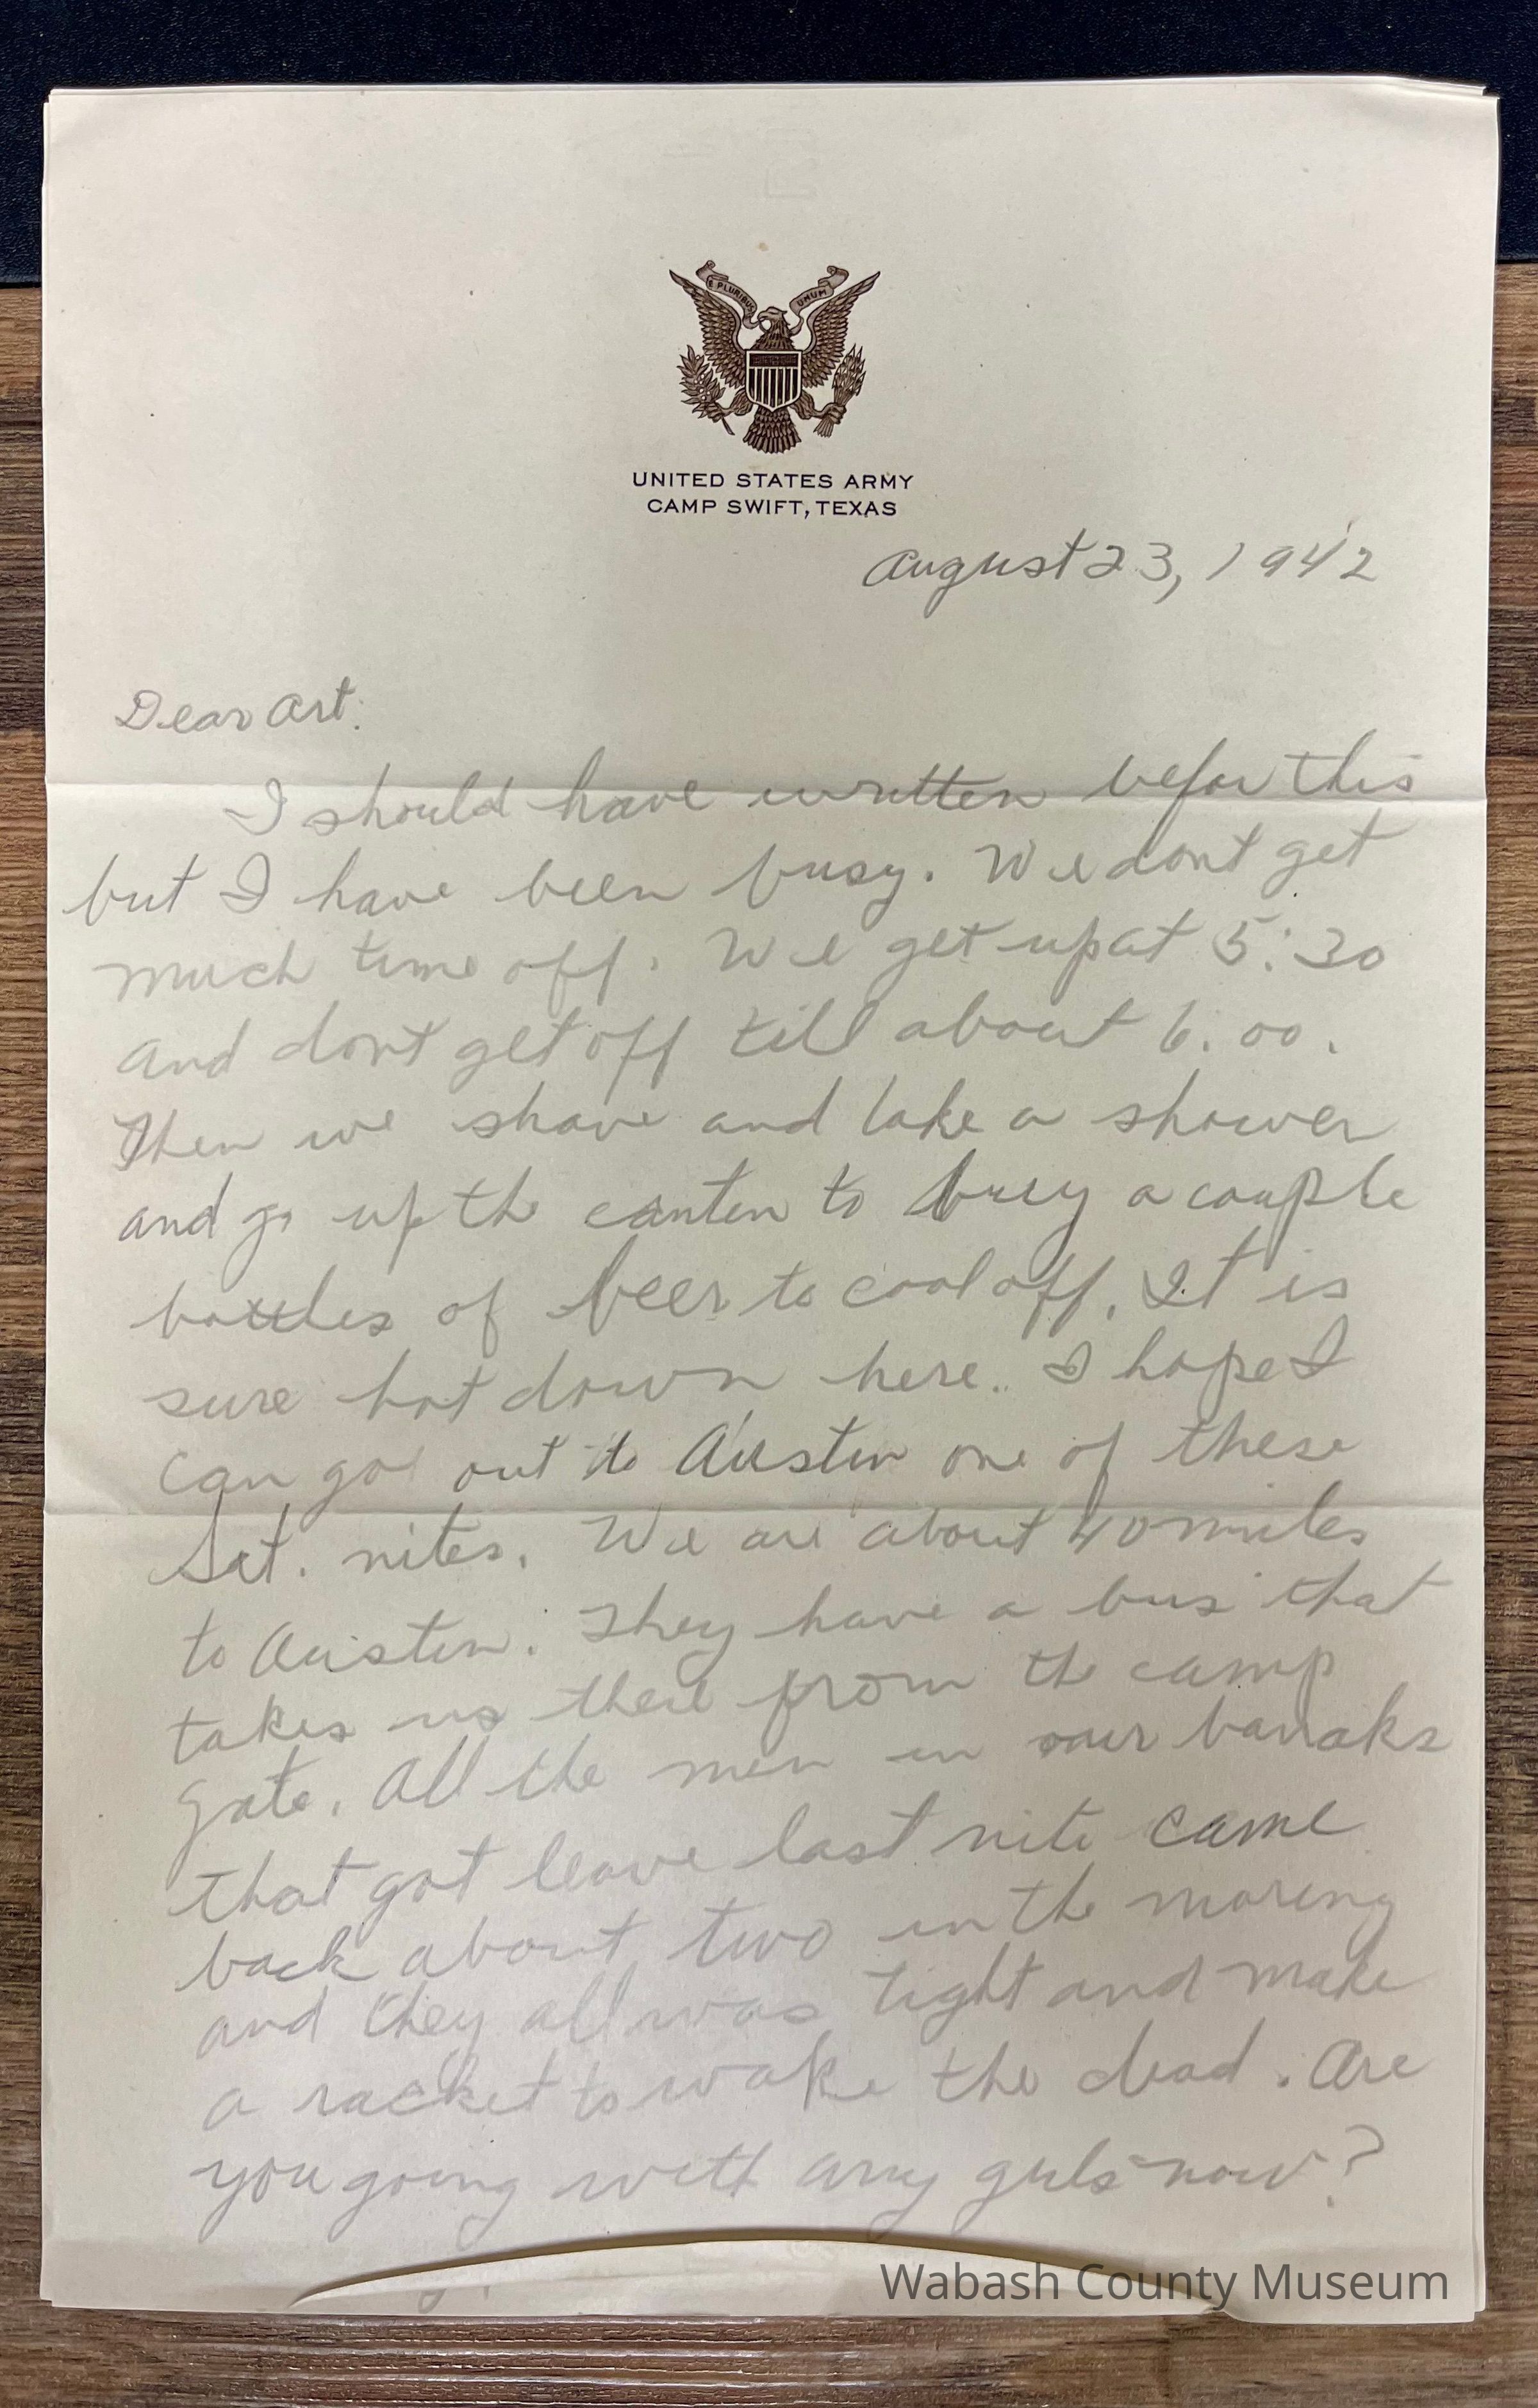 E PLURIBUS UNUM
UNITED STATES ARMY
CAMP SWIFT, TEXAS
August 23, 1942
Dear Art:
I should have written befor this
but I have been busy. We dont get
much time off. We get up at 5:30
and dont get off till about 6:00.
Then we shave and take a shower
and go up the canten to buy a couple
bottles of beer to cool off. It is
sure hot down here. I hope I
can go out to Austin one of these
Sat. nites. We are about 40 miles
to Austin. They have a bus that
takes us there from the camp
gate. All the men in our barraks
that got leave last nite came
back about two in the moring
and they all was tight and make
a racket to wake the dead. Are
you going with any girls now?
Wabash County Museum